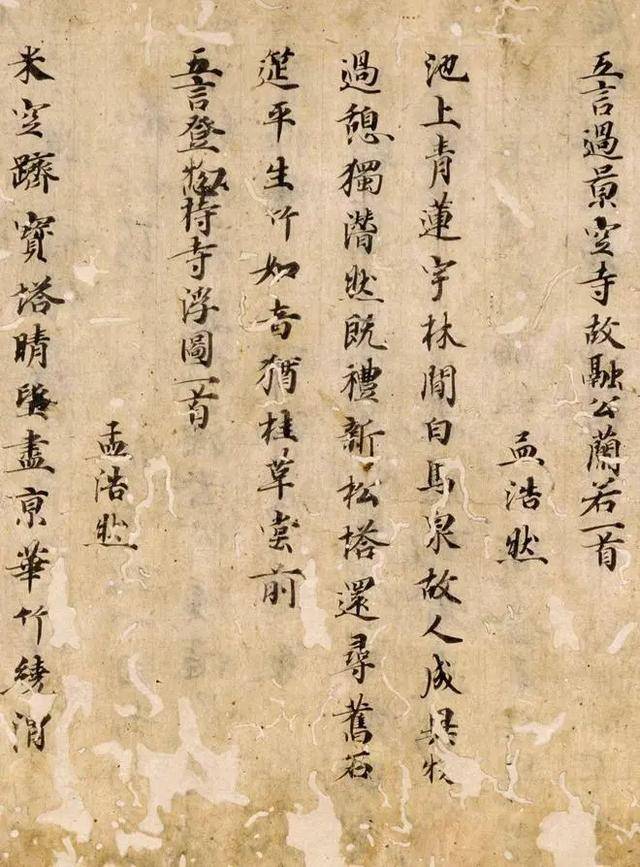 五言過景空寺故融公蘭若一首
孟浩然
池上青蓮宇林間白馬泉故人成異物
過憩獨潸然既禮新松塔還尋舊石
莚平生竹如意猶桂草堂前
五言登揔持寺浮圖一首
孟浩然
半空躋寶塔晴望盡京華竹繞渭